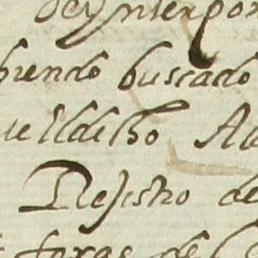 de Ynterpon
biendo buscado
uelldicho Au
Rejistro de
foxas de